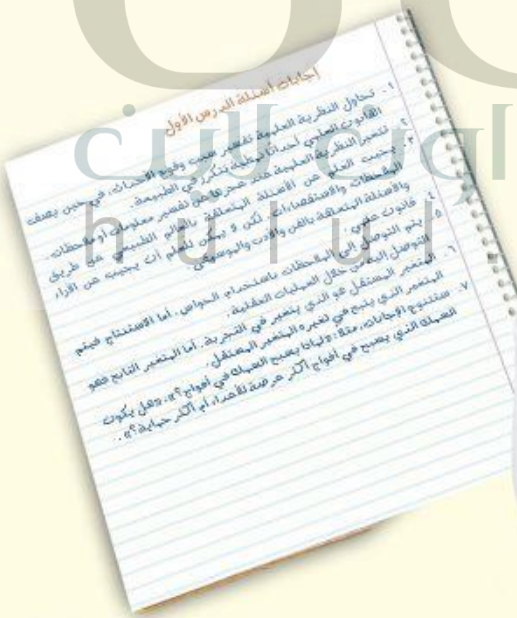 إجابات أسئلة الدرس الأول
١. تحاول النظرية العلمية تفسير سبب وقوع الأحداث، في حين يصف
القانون العلمي أحياناً نمطاً يتكرر في الطبيعة.
٢. تتميز النظرية العلمية على تفسير معلومات أو ملاحظات.
٣. يجيب العلم عن الأسئلة المتعلقة بالعالم الطبيعي عن طريق
الملاحظات والاستقصاءات، لكن لا يمكن للعلم أن يجيب عن الآراء
والأسئلة المتعلقة بالفن والأدب والموسيقى.
٤. قانون علمي.
٥. يتم التوصل إلى الملاحظات باستخدام الحواس. أما الاستنتاج فيتم
التوصل إليه من خلال العمليات العقلية.
٦. المتغير المستقل هو الذي يتغير في التجربة. أما المتغير التابع فهو
المتغير الذي ينتج عن تغير المتغير المستقل.
٧. ستتنوع الإجابات. مثلاً: ولماذا يسبح السمك في أفواج؟»، «هل يكون
السمك الذي يسبح في أفواج أكثر عرضة للأعداء أم أكثر حماية؟».
حلول اون لاين
hulul.